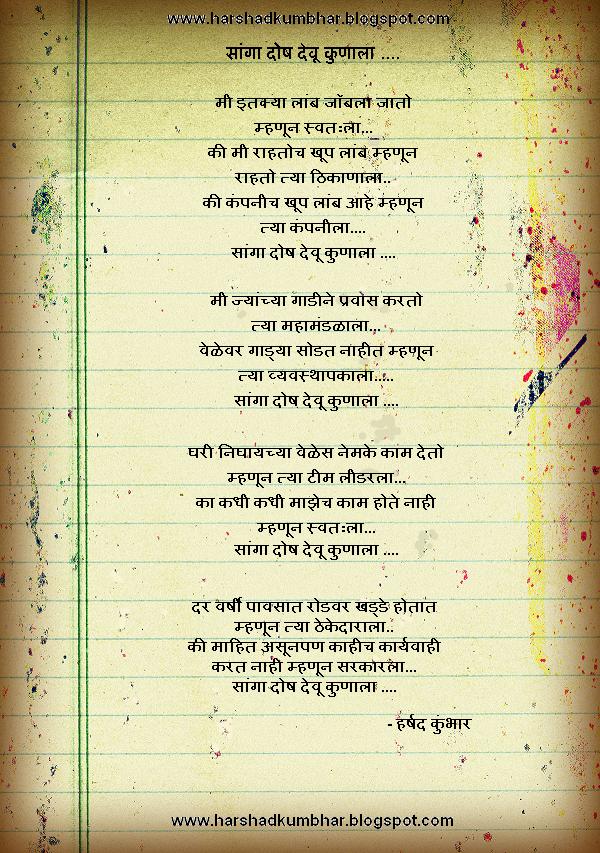 www.harshadkumbhar.blogspot.com
सांगा दोष देवू कुणाला ....
मी इतक्या लांब जॉबला जातो
म्हणून स्वतःला...
की मी राहतोच खूप लांब म्हणून
राहतो त्या ठिकाणाला..
की कंपनीच खूप लांब आहे म्हणून
त्या कंपनीला....
सांगा दोष देवू कुणाला ....
मी ज्यांच्या गाडीने प्रवास करतो
त्या महामंडळाला...
वेळेवर गाड्या सोडत नाहीत म्हणून
त्या व्यवस्थापकाला.....
सांगा दोष देवू कुणाला ....
घरी निघायच्या वेळेस नेमके काम देतो
म्हणून त्या टीम लीडरला...
का कधी कधी माझेच काम होते नाही
म्हणून स्वतःला...
सांगा दोष देवू कुणाला ....
दर वर्षी पावसात रोडवर खड्डे होतात
म्हणून त्या ठेकेदाराला..
की माहित असूनपण काहीच कार्यवाही
करत नाही म्हणून सरकारला...
सांगा दोष देवू कुणाला ....
- हर्षद कुंभार
www.harshadkumbhar.blogspot.com